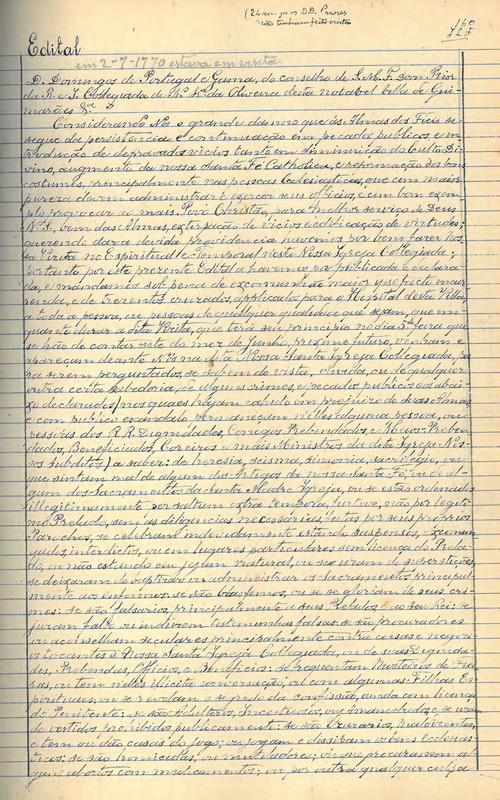 (24 an. já os DD. Priores
não tinham feito visita
Edital
em 2-7-1770 estava em visita
D. Domingos de Portugal e Gama, do conselho de S. M. F. Dom Prior
da R. e I. Collegiada de N. Sr.ª da Oliveira desta notavel Villa de Gui-
marães &ª
Considerando Nós o grande damno que ás Almas dos Fieis se
segue da persistencia e continuação em peccados publicos, e in-
trodução de depravados vicios tanto em diminuição do Culto Di-
vino, augmento da nossa Santa Fé Catholica, e reformação dos bons
costumes, principalmente nas pessoas Ecclesiasticas, que com mais
pureza devem administrar e exercer seus officios, e com bom exem-
plo provocar ao mais Povo Christão, para melhor serviço de Deus
N. S., bem das Almas, extirpação de vicios e edificação de virtudes;
querendo dar a devida providencia havemos por bem fazer Nos-
sa Visita no Espiritual e Temporal nesta Nossa Igreja Collegiada;
portanto por este prezente Edital a havemos por publicada e declara-
da, e mandamos sob pena de excomunhão maior ipso facto incur-
renda, e de trezentos cruzados, applicados para o Hospital desta Villa,
a toda a pessoa, ou pessoas de qualquer qualidade que sejam, que em-
quanto durar a dita Visita, que terá seu principio no dia 5ª feira que
se hão de contar sete do mez de Junho, proximo futuro, venham e
appareçam deante Nós na dita Nossa Santa Igreja Collegiada, pa-
ra serem perguntados, se sabem de vista, ouvida, ou de qualquer
outra certa sabedoria, de alguns crimes, e peccados publicos aos abai-
xo declarados / nos quaes hajam cahido em prejuizo de suas Almas
e com publico escandalo permaneçam nelles alguma pessoa, ou
pessoas dos R.R. Dignidades, Conegos Prebendados, e Meios Preben-
dados, Beneficiados, Coreiros e mais Ministros da dita Igreja Nos-
sos subditos / a saber: de heresia, scisma, simonia, sacrilegio, ou
que sintam mal de algum dos Artigos da nossa Santa Fé: ou de al-
gum dos Sacramentos da Santa Madre Igreja, ou se estão ordenados
illegitimamente per saltum extra tempora, furtive, não por legiti-
mo Prelado, sem as diligencias necessarias, feitas por seus proprios
Parochos, se celebram indevidamente estando suspensos, excomun-
gados, interdictos, ou em lugares particulares sem licença do Prela-
do, ou não estando em jejum natural, ou se usaram de superstições,
se deixaram de baptizar ou administrar os sacramentos principal-
mente aos enfermos: se são blasfemos, ou se se gloriam de seus cri-
mes: se são falsarios, principalmente a seus Prelados e ao seu Rei: se
juram falso ou induzem testemunhas falsas: se são procuradores
ou aconselham seculares principalmente contra causas e negoci-
os tocantes a Nossa Santa Igreja Collegiada, ou de suas Dignida-
des, Prebendas, Officios, e Beneficios: se frequentam Mosteiros de Frei-
ras, ou tem nelles illicita conversação, ou com algumas Filhas Es-
pirituaes, ou se revelaram o sigillo da confissão, ainda com licença
do Penitente: se são Adulteros, Incestuosos, ou Amancebados, e se usam
de vestidos prohibidos publicament.: se são Uzurarios, maldizentes,
e tem ou dão casas de jogo; ou jogam e dissipam os bens ecclesias-
ticos: se são homicidas, ou mutiladores; ou que procurassem al-
guns abortos com medicamentos; ou por outra qualquer culpa